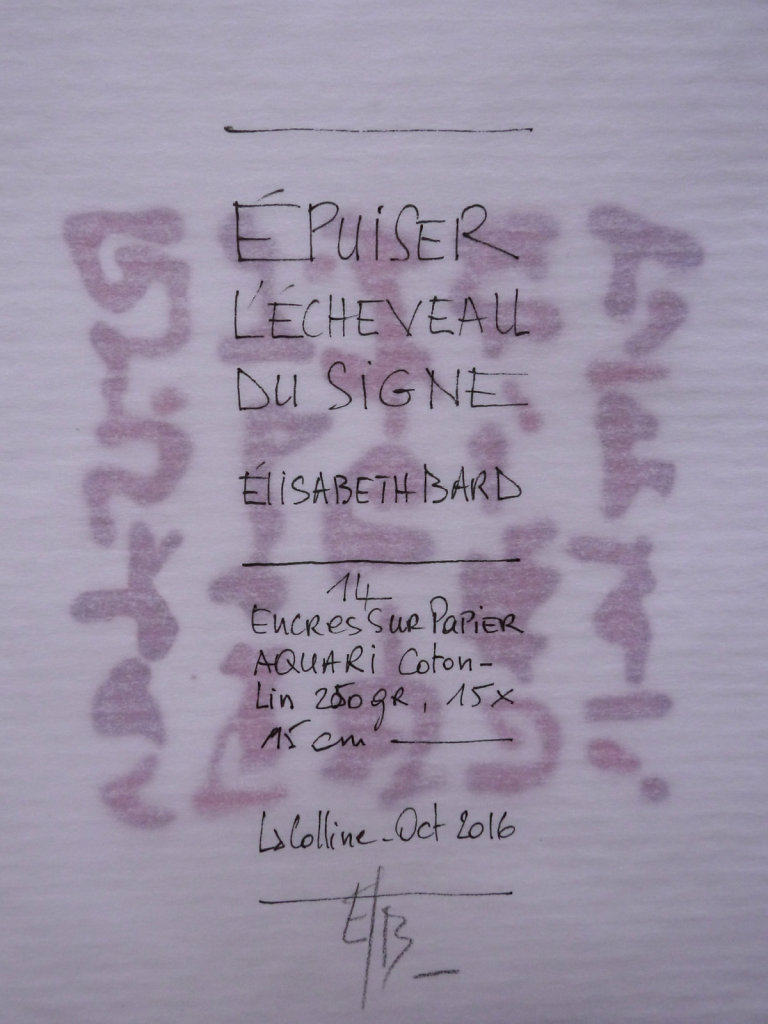 ÉPUISER
L'ÉCHEVEAU
DU SIGNE
ÉLISABETH BARD
14
ENCRES SUR PAPIER
AQUARI Coton-
Lin 250 gR, 15x
15 cm
La Colline - Oct 2016
E/B